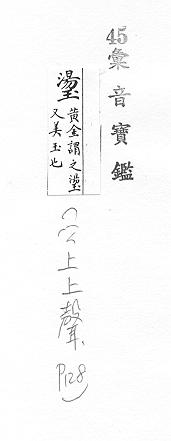 45
彙音寶鑑
璗
黃金謂之璗
又美玉也
公上上聲
P128